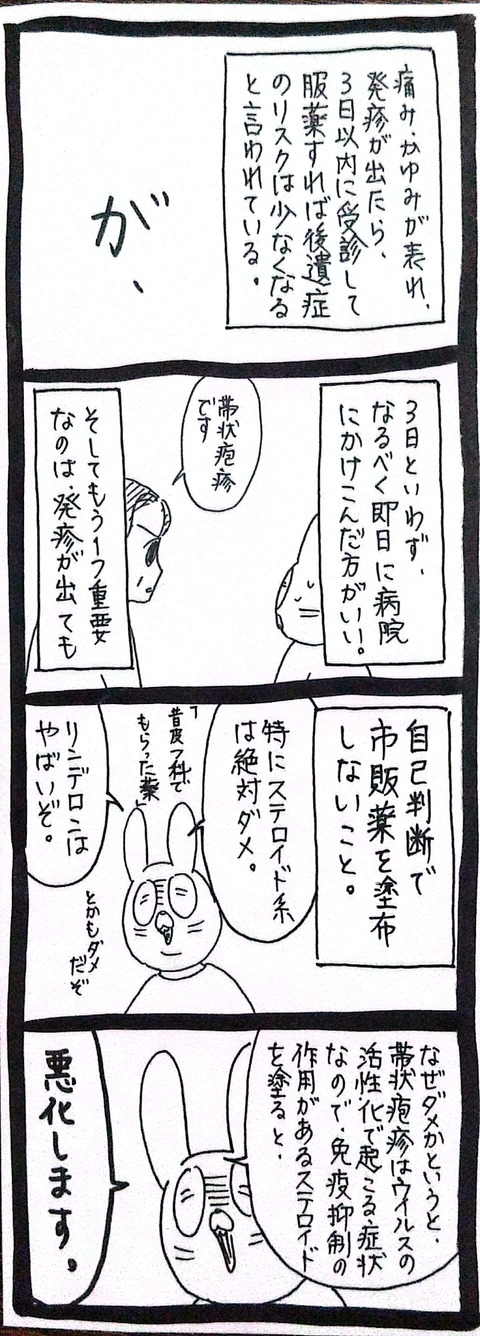 痛み、かゆみが表れ、
発疹が出たら、
3日以内に受診して
服薬すれば後遺症
のリスクは少なくなる
と言われている。
が、
3日といわず、
なるべく即日に病院
にかけこんだ方がいい!
帯状疱疹
です
そしてもう1つ重要
なのは、発疹が出ても
自己判断で
市販薬を塗布
しないこと。
特にステロイド系
は絶対ダメ。
「昔皮フ科で
もらった薬」
とかもダメ
だぞ
リンデロンは
やばいぞ。
なぜダメかというと、
帯状疱疹はウイルスの
活性化で起こる症状
なので、免疫抑制の
作用があるステロイド
を塗ると、
悪化します。